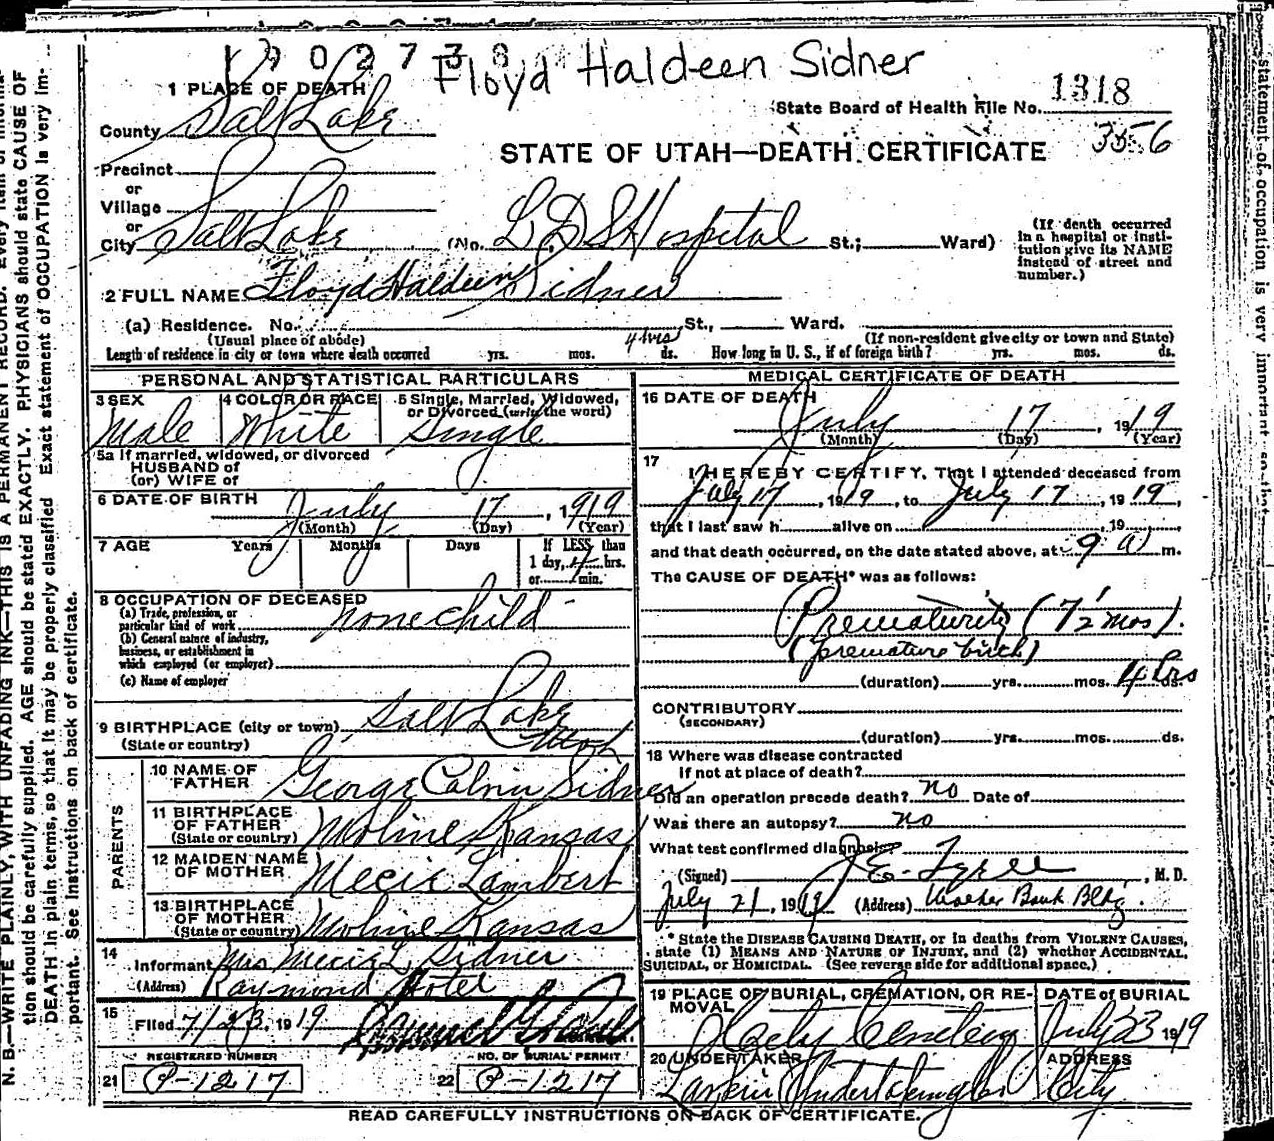 1902738
Floyd Haldeen Sidner
1 PLACE OF DEATH
State Board of Health File No. 1318
County Salt Lake
3556
STATE OF UTAH—DEATH CERTIFICATE
Precinct
or
Village
or
City Salt Lake (No. L.D.S Hospital St.; Ward)
(If death occurred
in a hospital or insti-
tution give its NAME
instead of street and
number.)
2 FULL NAME Floyd Haldeen Sidner
(a) Residence. No. St., Ward.
(Usual place of abode) (If non-resident give city or town and State)
Length of residence in city or town where death occurred yrs. mos. 4 hrs ds. How long in U. S., if of foreign birth? yrs. mos. ds.
PERSONAL AND STATISTICAL PARTICULARS
3 SEX
Male
4 COLOR OR RACE
White
5 Single, Married, Widowed,
or Divorced (write the word)
Single
5a If married, widowed, or divorced
HUSBAND of
(or) WIFE of
6 DATE OF BIRTH July 17, 1919
(Month) (Day) (Year)
7 AGE Years Months Days If LESS than
1 day, 4 hrs.
or min.
8 OCCUPATION OF DECEASED
(a) Trade, profession, or
particular kind of work none child
(b) General nature of industry,
business, or establishment in
which employed (or employer)
(c) Name of employer
9 BIRTHPLACE (city or town) Salt Lake
(State or country) Utah
PARENTS
10 NAME OF
FATHER George Calvin Sidner
11 BIRTHPLACE
OF FATHER
(State or country) Moline Kansas
12 MAIDEN NAME
OF MOTHER Mecie Lambert
13 BIRTHPLACE
OF MOTHER
(State or country) Moline Kansas
14
Informant Mrs Mecie L Sidner
(Address) Raymond Hotel
15
Filed 7/23, 1919
REGISTERED NUMBER
21 P-1217
NO. OF BURIAL PERMIT
22 P-1217
MEDICAL CERTIFICATE OF DEATH
16 DATE OF DEATH
July 17, 1919
(Month) (Day) (Year)
17
I HEREBY CERTIFY, That I attended deceased from
July 17, 1919, to July 17, 1919,
that I last saw h alive on , 19 ,
and that death occurred, on the date stated above, at 9 a m.
The CAUSE OF DEATH* was as follows:
Prematurity (7 1/2 mos).
(premature birth)
(duration) yrs. mos. 4 hrs ds.
CONTRIBUTORY
(SECONDARY)
(duration) yrs. mos. ds.
18 Where was disease contracted
if not at place of death?
Did an operation precede death? no Date of
Was there an autopsy? no
What test confirmed diagnosis?
(Signed) J. E. Tyree, M. D.
July 21, 1919 (Address) Walker Bank Bldg.
* State the DISEASE CAUSING DEATH, or in deaths from VIOLENT CAUSES,
state (1) MEANS AND NATURE OF INJURY, and (2) whether ACCIDENTAL,
SUICIDAL, or HOMICIDAL. (See reverse side for additional space.)
19 PLACE OF BURIAL, CREMATION, OR RE-
MOVAL
Cemetery
DATE of BURIAL
July 23 1919
20 UNDERTAKER
Larkin Undertaking Co
ADDRESS
City
READ CAREFULLY INSTRUCTIONS ON BACK OF CERTIFICATE.
N. B.—WRITE PLAINLY, WITH UNFADING INK—THIS IS A PERMANENT RECORD. Every item of informa-
tion should be carefully supplied. AGE should be stated EXACTLY. PHYSICIANS should state CAUSE OF
DEATH in plain terms, so that it may be properly classified. Exact statement of OCCUPATION is very im-
portant. See instructions on back of certificate.
statement of occupation is very important